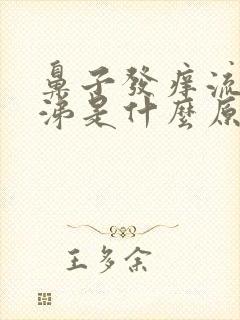 鼻子發癢流
涕是什麼原
王多余